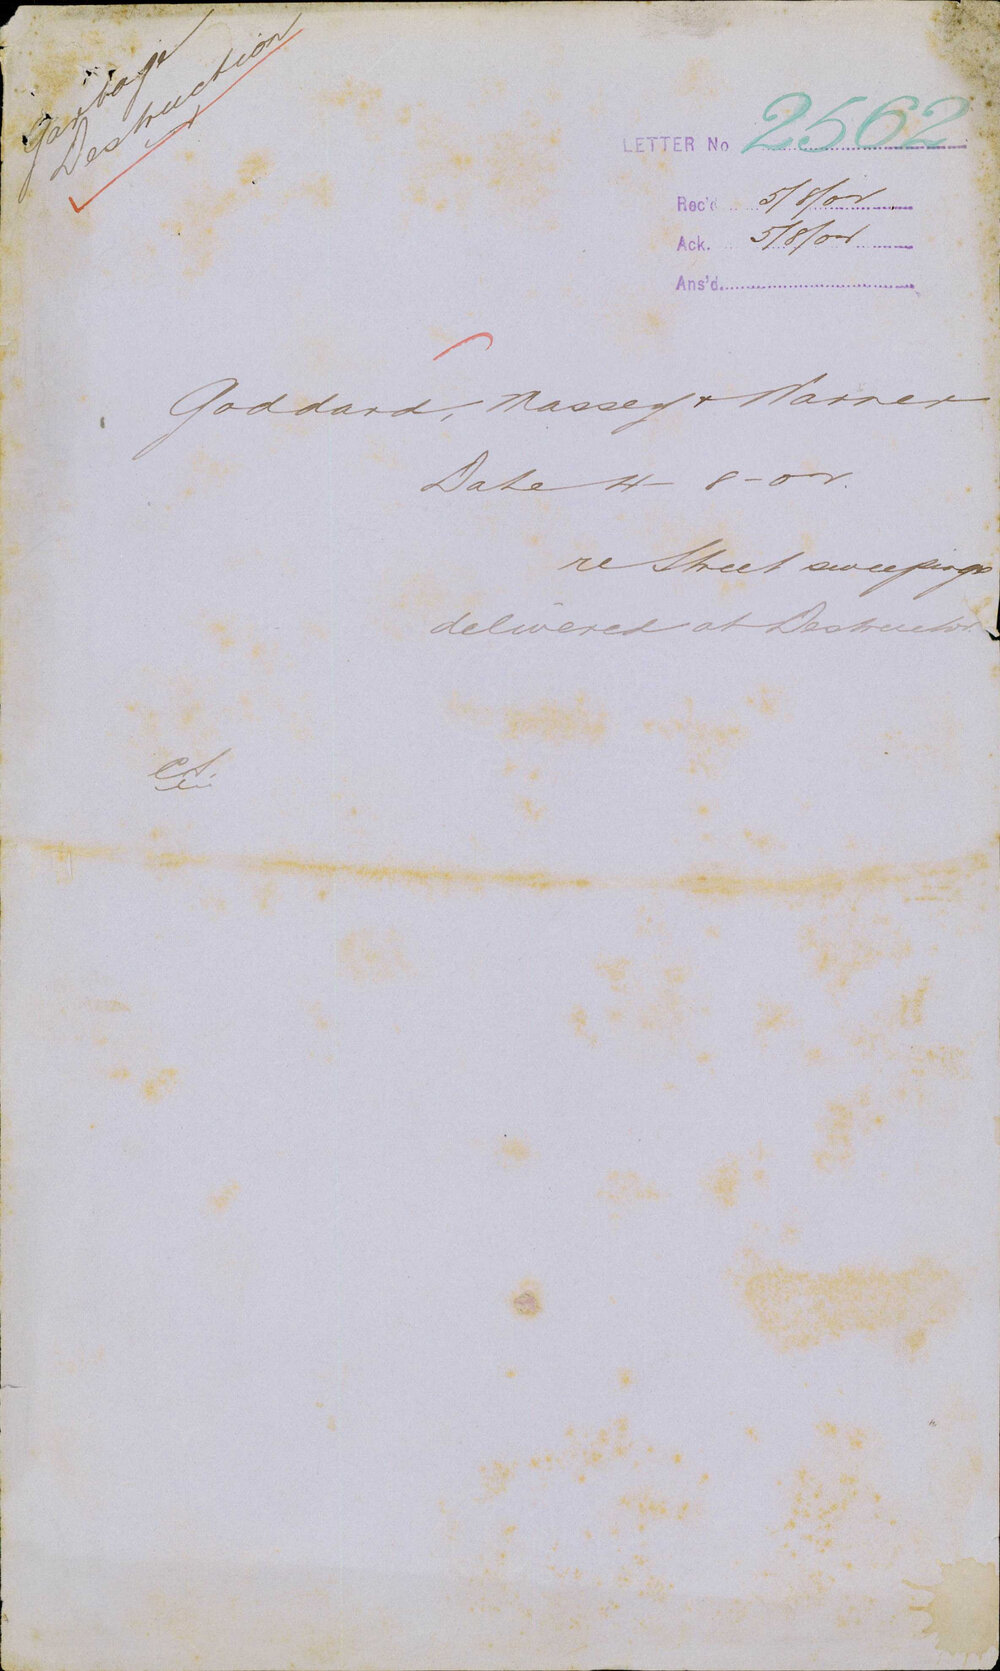 Garbage
Destruction
LETTER No 2562
Rec'd 5/8/02
Ack. 5/8/02
Ans'd
Goddard, Massey & Warner
Date 4-8-02.
re Street sweepings
delivered at Destructor